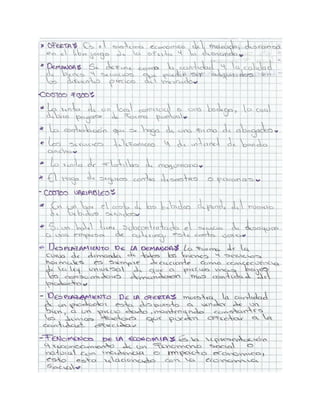 * OFERTA: Es el sistema economico del mercado, descansa
en el libre juego de la oferta y la demanda.
* DEMANDA: Se define como la cantidad y la calidad
de bienes y servicios que pueden ser adquiridos en
los diferentes precios del mercado
COSTOS FIJOS:
* La renta de un local comercial o una bodega, la cual
debe pagarse de forma puntual.
* La contratación que se haga de una firma de abogados.
* Los servicios telefonicos y de internet de banda
ancha.
* La renta de maquinaria.
* El pago de seguros contra desastres o
- COSTOS VARIABLES:
* En un bar el costo de las bebidas depende del numero
de bebidas servidas.
* Si un hotel tiene subcontratado el servicio de desayuno
a una empresa de catering, este costo
- DESPLAZAMIENTO DE LA DEMANDA: La forma de la
curva de demanda de todos los bienes y servicios
normales es siempre decreciente como consecuencia
de la ley universal de que a precios mas bajos
los consumidores demandaran mas cantidad del
producto.
- DESPLAZAMIENTO DE LA OFERTA: muestra la cantidad
de un productor esta dispuesto a vender de un
bien, a un precio dado, manteniendo constantes
los demas factores que pueden afectar a la
cantidad ofrecida.
- FENOMENOS DE LA ECONOMIA: es la representación
o reconocimiento de un fenomeno social o
natural con incidencia o impacto economico,
esto esta relacionado con la economia
social.